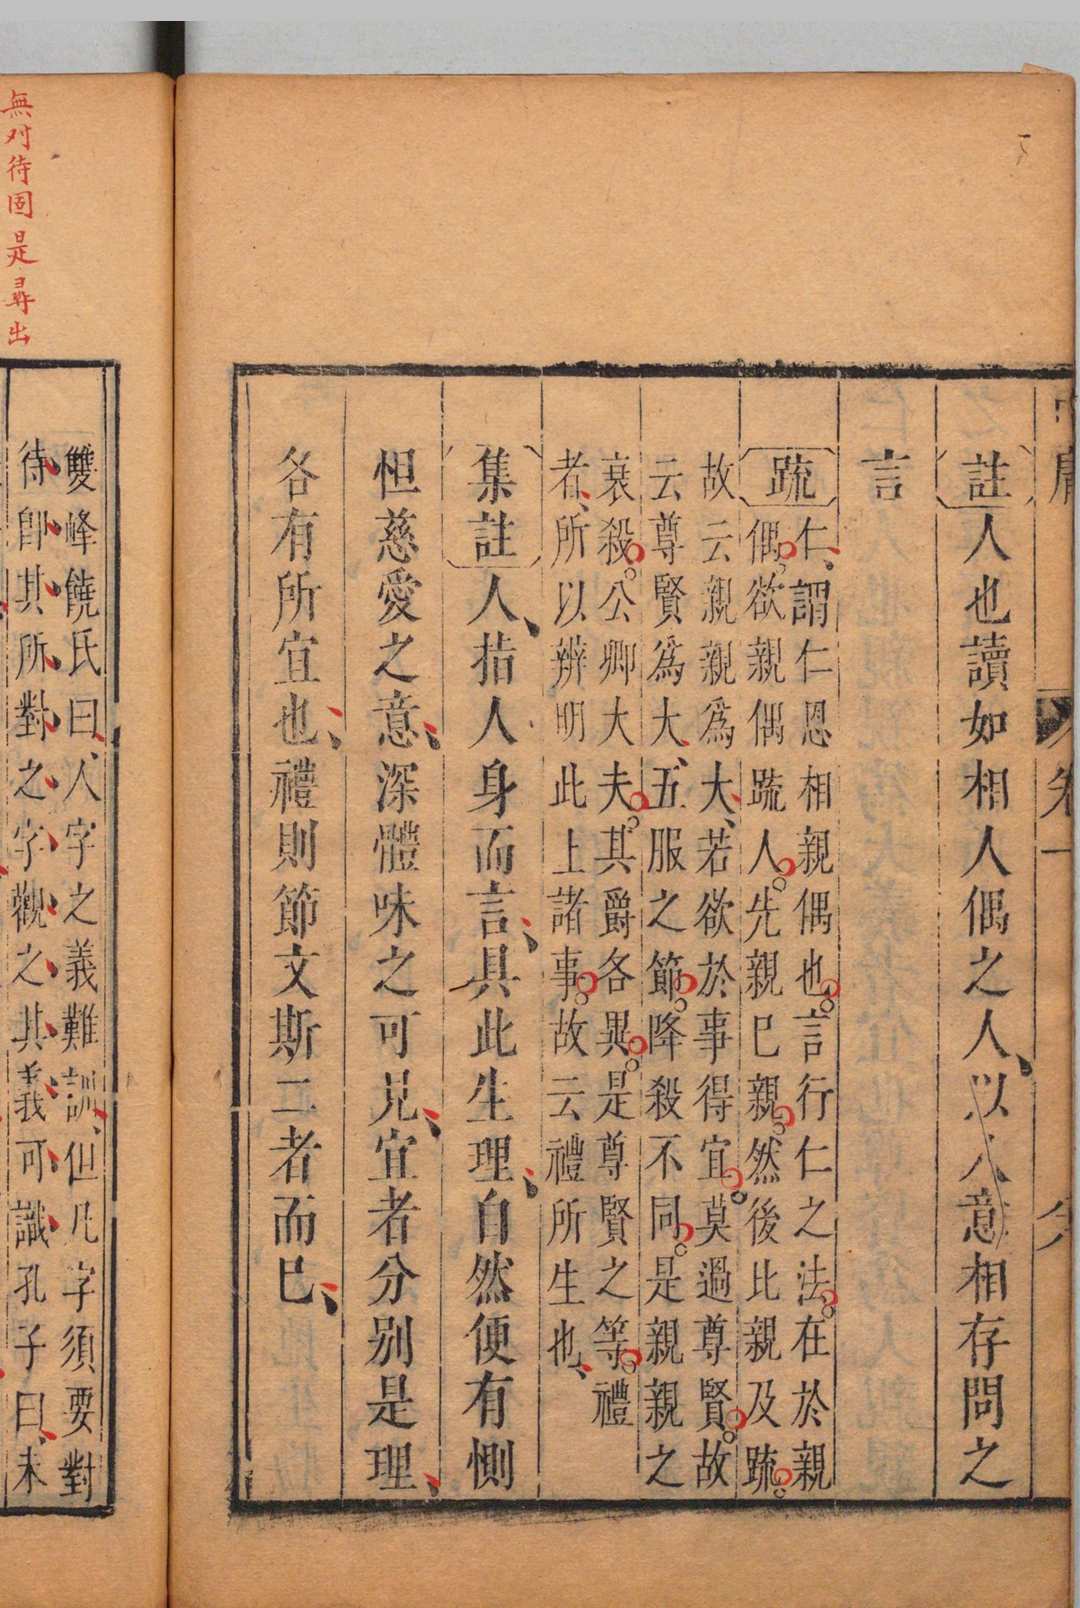 中庸 卷一
註人也讀如相人偶之人以人意相存問之
言
疏仁謂仁恩相親偶也言行仁之法在於親
偶欲親偶疏人先親己親然後比親及疏
故云親親爲大若欲於事得宜莫過尊賢故
云尊賢爲大五服之節降殺不同是親親之
衰殺公卿大夫其爵各異是尊賢之等禮
者所以辨明此上諸事故云禮所生也
集註人指人身而言具此生理自然便有惻
怛慈愛之意深體味之可見宜者分別是理
各有所宜也禮則節文斯二者而已
無对待固是尋出
雙峰饒氏曰人字之義難訓但凡字須要對
待卽其所對之字觀之其義可識孔子曰未